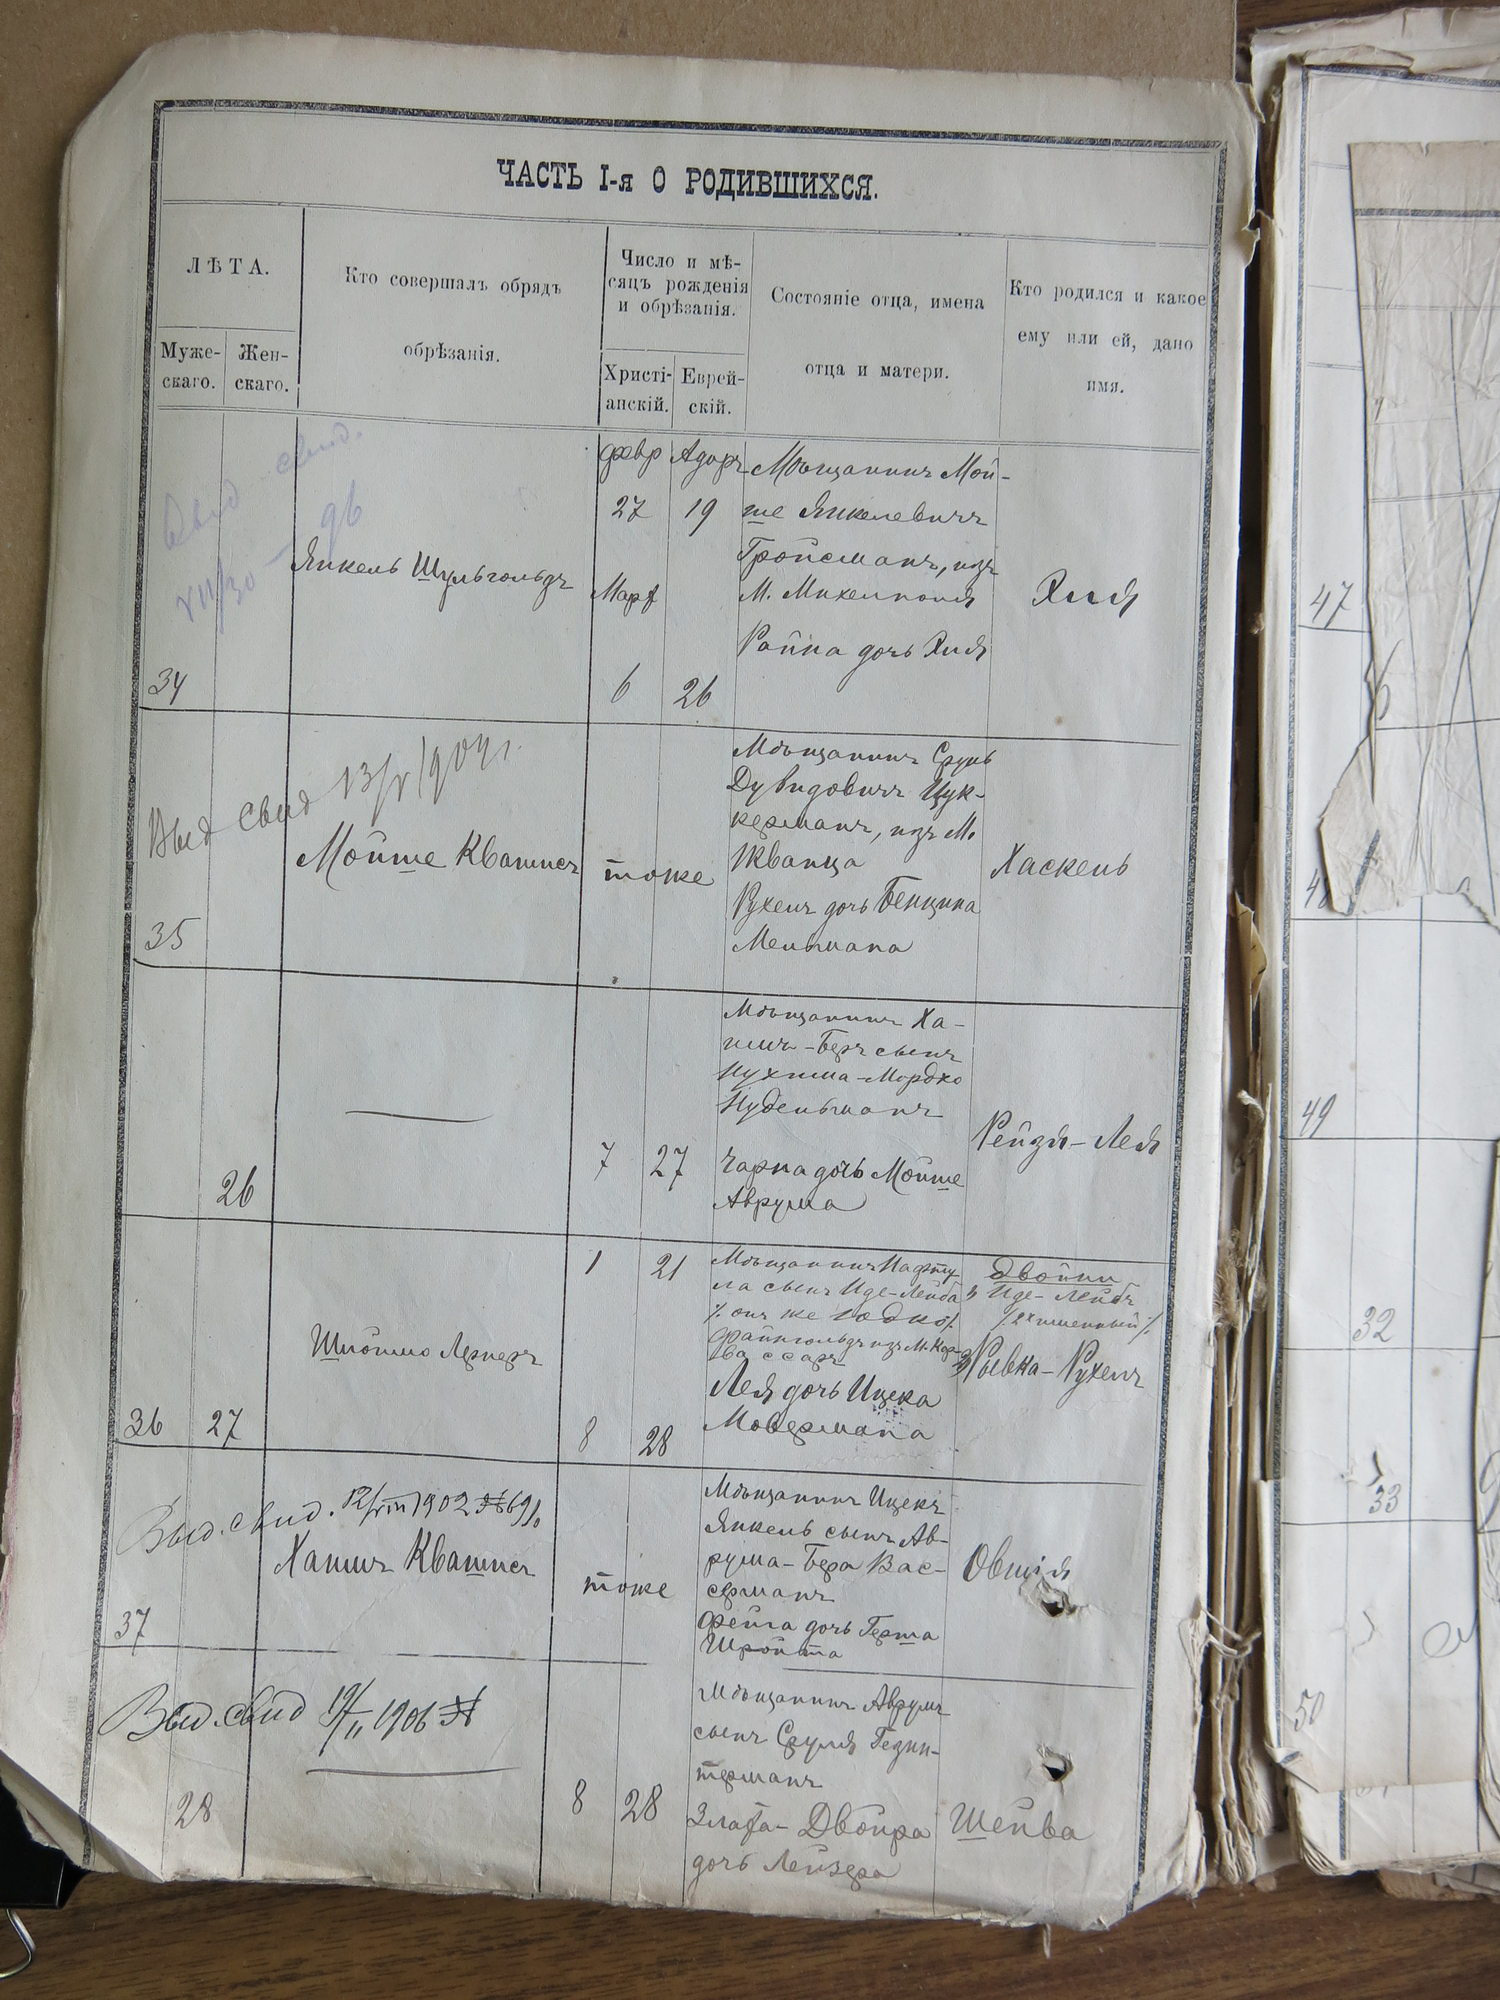 ЧАСТЬ I-я О РОДИВШИХСЯ.
ЛѢТА.
Муже-
скаго.
Жен-
скаго.
Кто совершалъ обрядъ
обрѣзанія.
Число и мѣ-
сяцъ рожденія
и обрѣзанія.
Христі-
анскій.
Еврей-
скій.
Состояніе отца, имена
отца и матери.
Кто родился и какое
ему или ей, дано
имя.
свид.
34
Янкель Шульгольдъ
Февр
27
Март
6
Адаръ
19
26
Мѣщанинъ Мой-
ше Янкелевичъ
Гройсманъ, изъ
М.
дочь Хиля
Хиля
Выд свид 13/V 1904 г.
35
Мойше Квашисъ
тоже
Мѣщанинъ Сруль
Дувидовичъ Цук-
керманъ, изъ М.
Жванца
Рухель дочь Бенциона
Мельмана
Хаскель
26
7
27
Мѣщанинъ Ха-
имъ-Беръ сынъ
Нухима-Мордко
Нудельманъ
Чарна дочь Мойше
Аврума
Рейзя-Лея
36
27
Шлойме Лернеръ
1
8
21
28
Мѣщанинъ Нафту-
ла сынъ Иде-Лейба
/. онъ же Годко /.
Файнгольдъ изъ М.
Лея дочь Ицека
Мовермана
Двойни
Иде-Лейбъ
Рывка-Рухель
Выд. свид. 12/VIII 1902 № 691
37
Хаимъ Квашисъ
тоже
Мѣщанинъ Ицекъ
Янкель сынъ Ав-
рума-Бера Вас-
серманъ
Фейга дочь Герша
Шройта
Овшія
Выд. свид 19/II 1906 №
28
8
28
Мѣщанинъ Аврумъ
сынъ Сруля
терманъ
Злата-Двойра
дочь Лейзера
Шейва
47
49
32
33
50